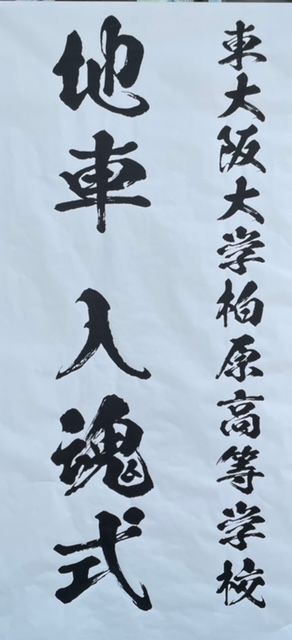 東大阪大学柏原高等学校
地車 入魂式